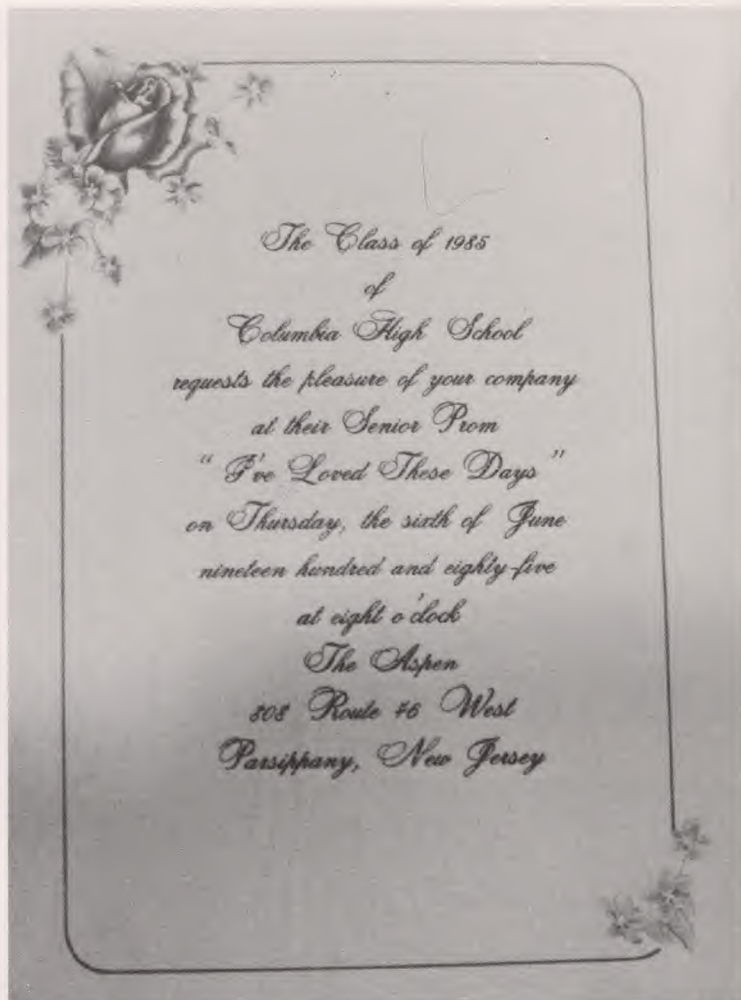 The Class of 1985
of
Columbia High School
requests the pleasure of your company
at their Senior Prom
" I've Loved These Days "
on Thursday, the sixth of June
nineteen hundred and eighty-five
at eight o'clock
The Aspen
808 Route 46 West
Parsippany, New Jersey